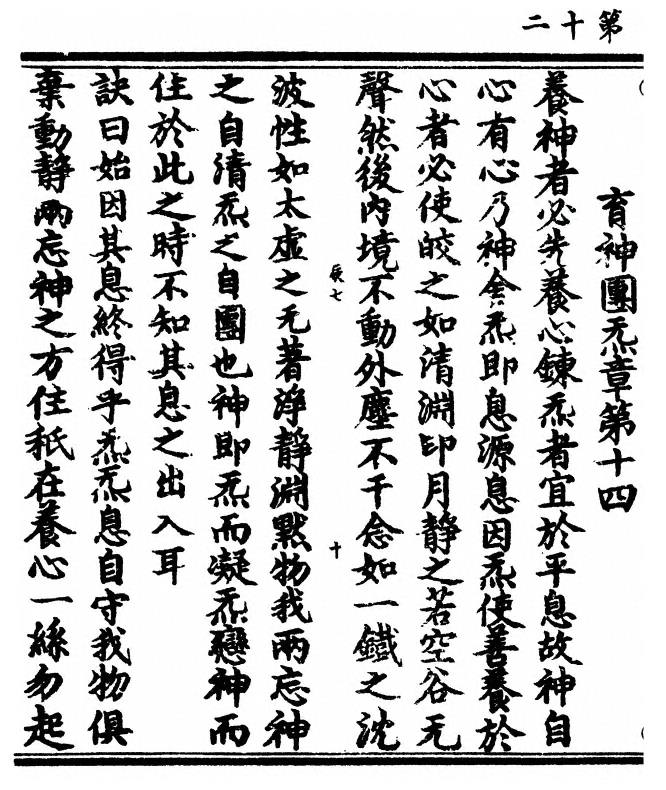 第十二
育神團炁章第十四
養神者必先養心鍊炁者宜於平息故神自
心有心乃神舍炁即息源息因炁使善養於
心者必使皎之如清淵印月靜之若空谷无
聲然後内境不動外塵不干念如一鐵之沈
辰七
十
波性如太虛之无著淨靜淵默物我兩忘神
之自清炁之自團也神即炁而凝炁戀神而
住於此之時不知其息之出入耳
訣曰始因其息終得乎炁炁息自守我物俱
棄動靜兩忘神之方住秖在養心一絲勿起